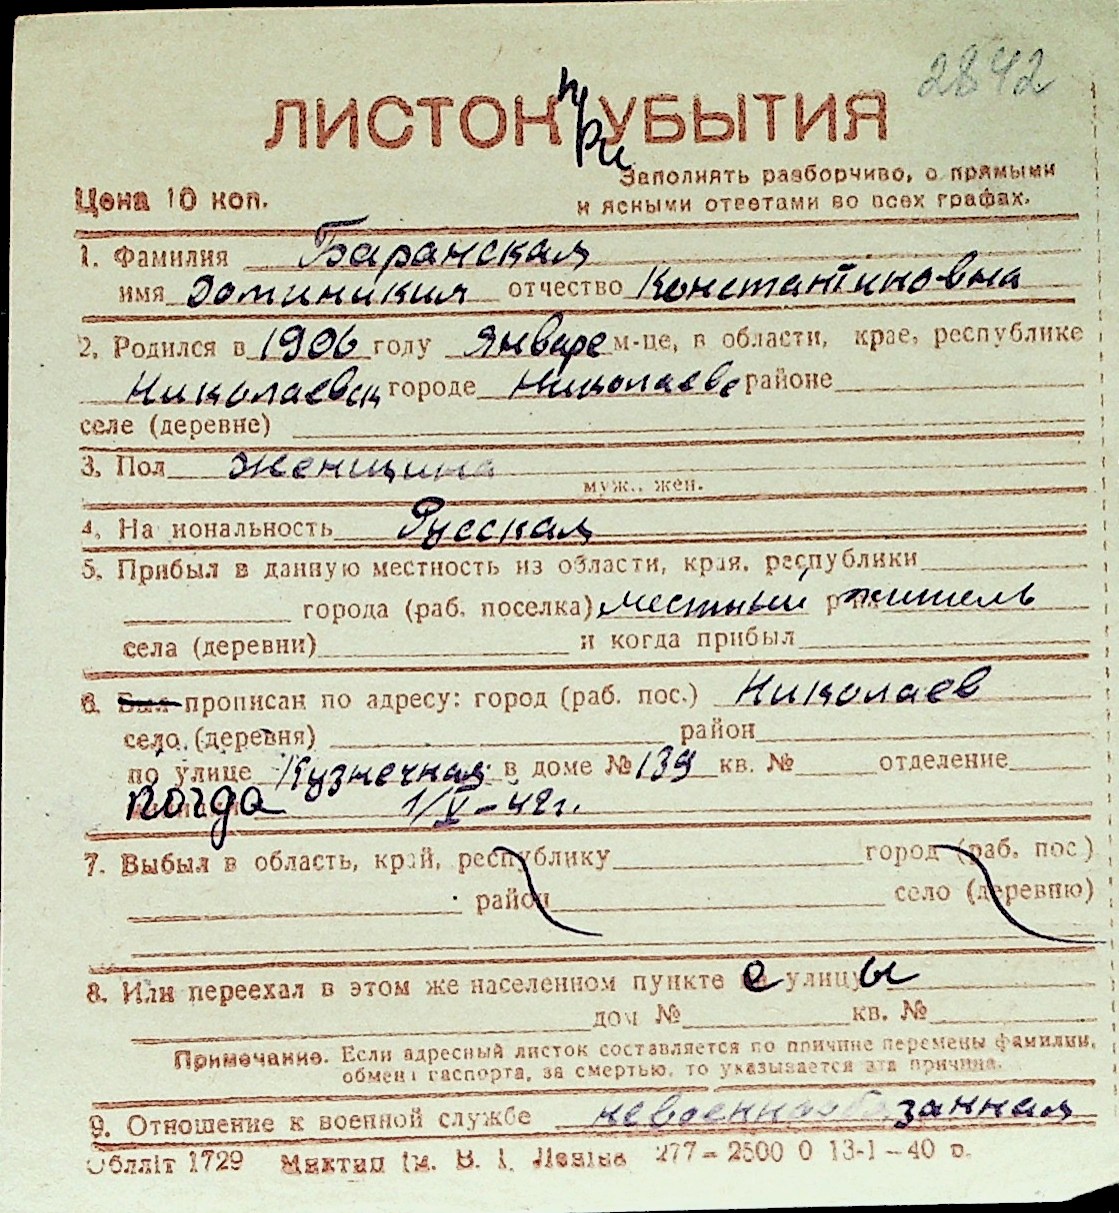 2842
ЛИСТОК при УБЫТИЯ
Заполнять разборчиво, с прямыми
Цена 10 коп. и ясными ответами во всех графах.
1. Фамилия Баранская
имя Доминикия отчество Константиновна
2. Родился в 1906 году Январе м-це, в области, крае, республике
Николаевск городе Николаеве районе
селе (деревне)
3. Пол женщина
муж., жен.
4. На иональность Русская
5. Прибыл в данную местность из области, края, республики
города (раб. поселка) местный житель
села (деревни) и когда прибыл
6. Был прописан по адресу: город (раб. пос.) Николаев
село (деревня) район
по улице Кузнечная в доме № 139 кв. № отделение
когда 1/V-42г.
7. Выбыл в область, край, республику город (раб. пос)
район село (деревню)
8. Или переехал в этом же населенном пункте с улицы
дом № кв. №
Примечание. Если адресный листок составляется по причине перемены фамилии,
обмена паспорта, за смертью, то указывается эта причина.
9. Отношение к военной службе невоеннообязанная
Обллiт 1729 iм. В. I. Ленiна 277-2500 0 13-1-40 р.